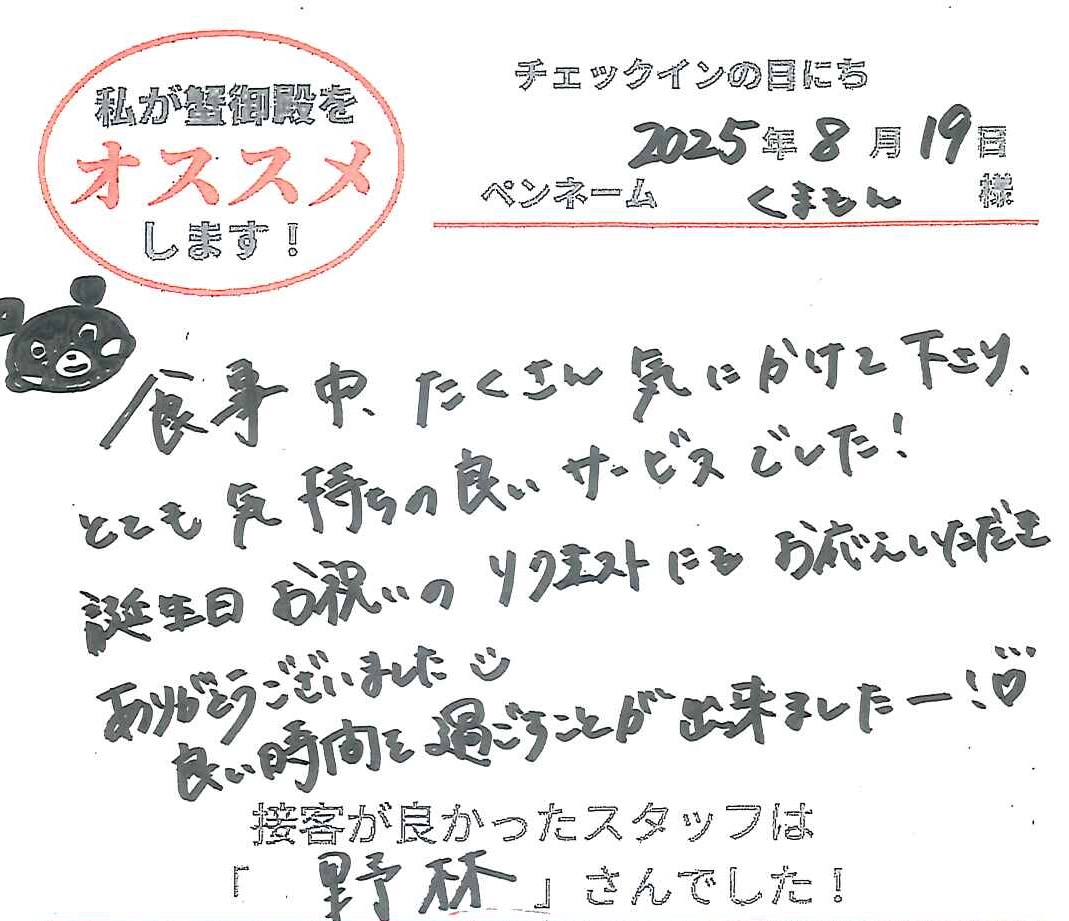 私が蟹御殿を
オススメ
します！
チェックインの日にち
2025年8月19日
ペンネーム くまもん 様
食事中、たくさん気にかけて下さり、
とても気持ちの良いサービスでした！
誕生日お祝いのリクエストにもお応えいただき
ありがとうございました
良い時間を過ごすことが出来ましたー！♡
接客が良かったスタッフは
「野林」さんでした！